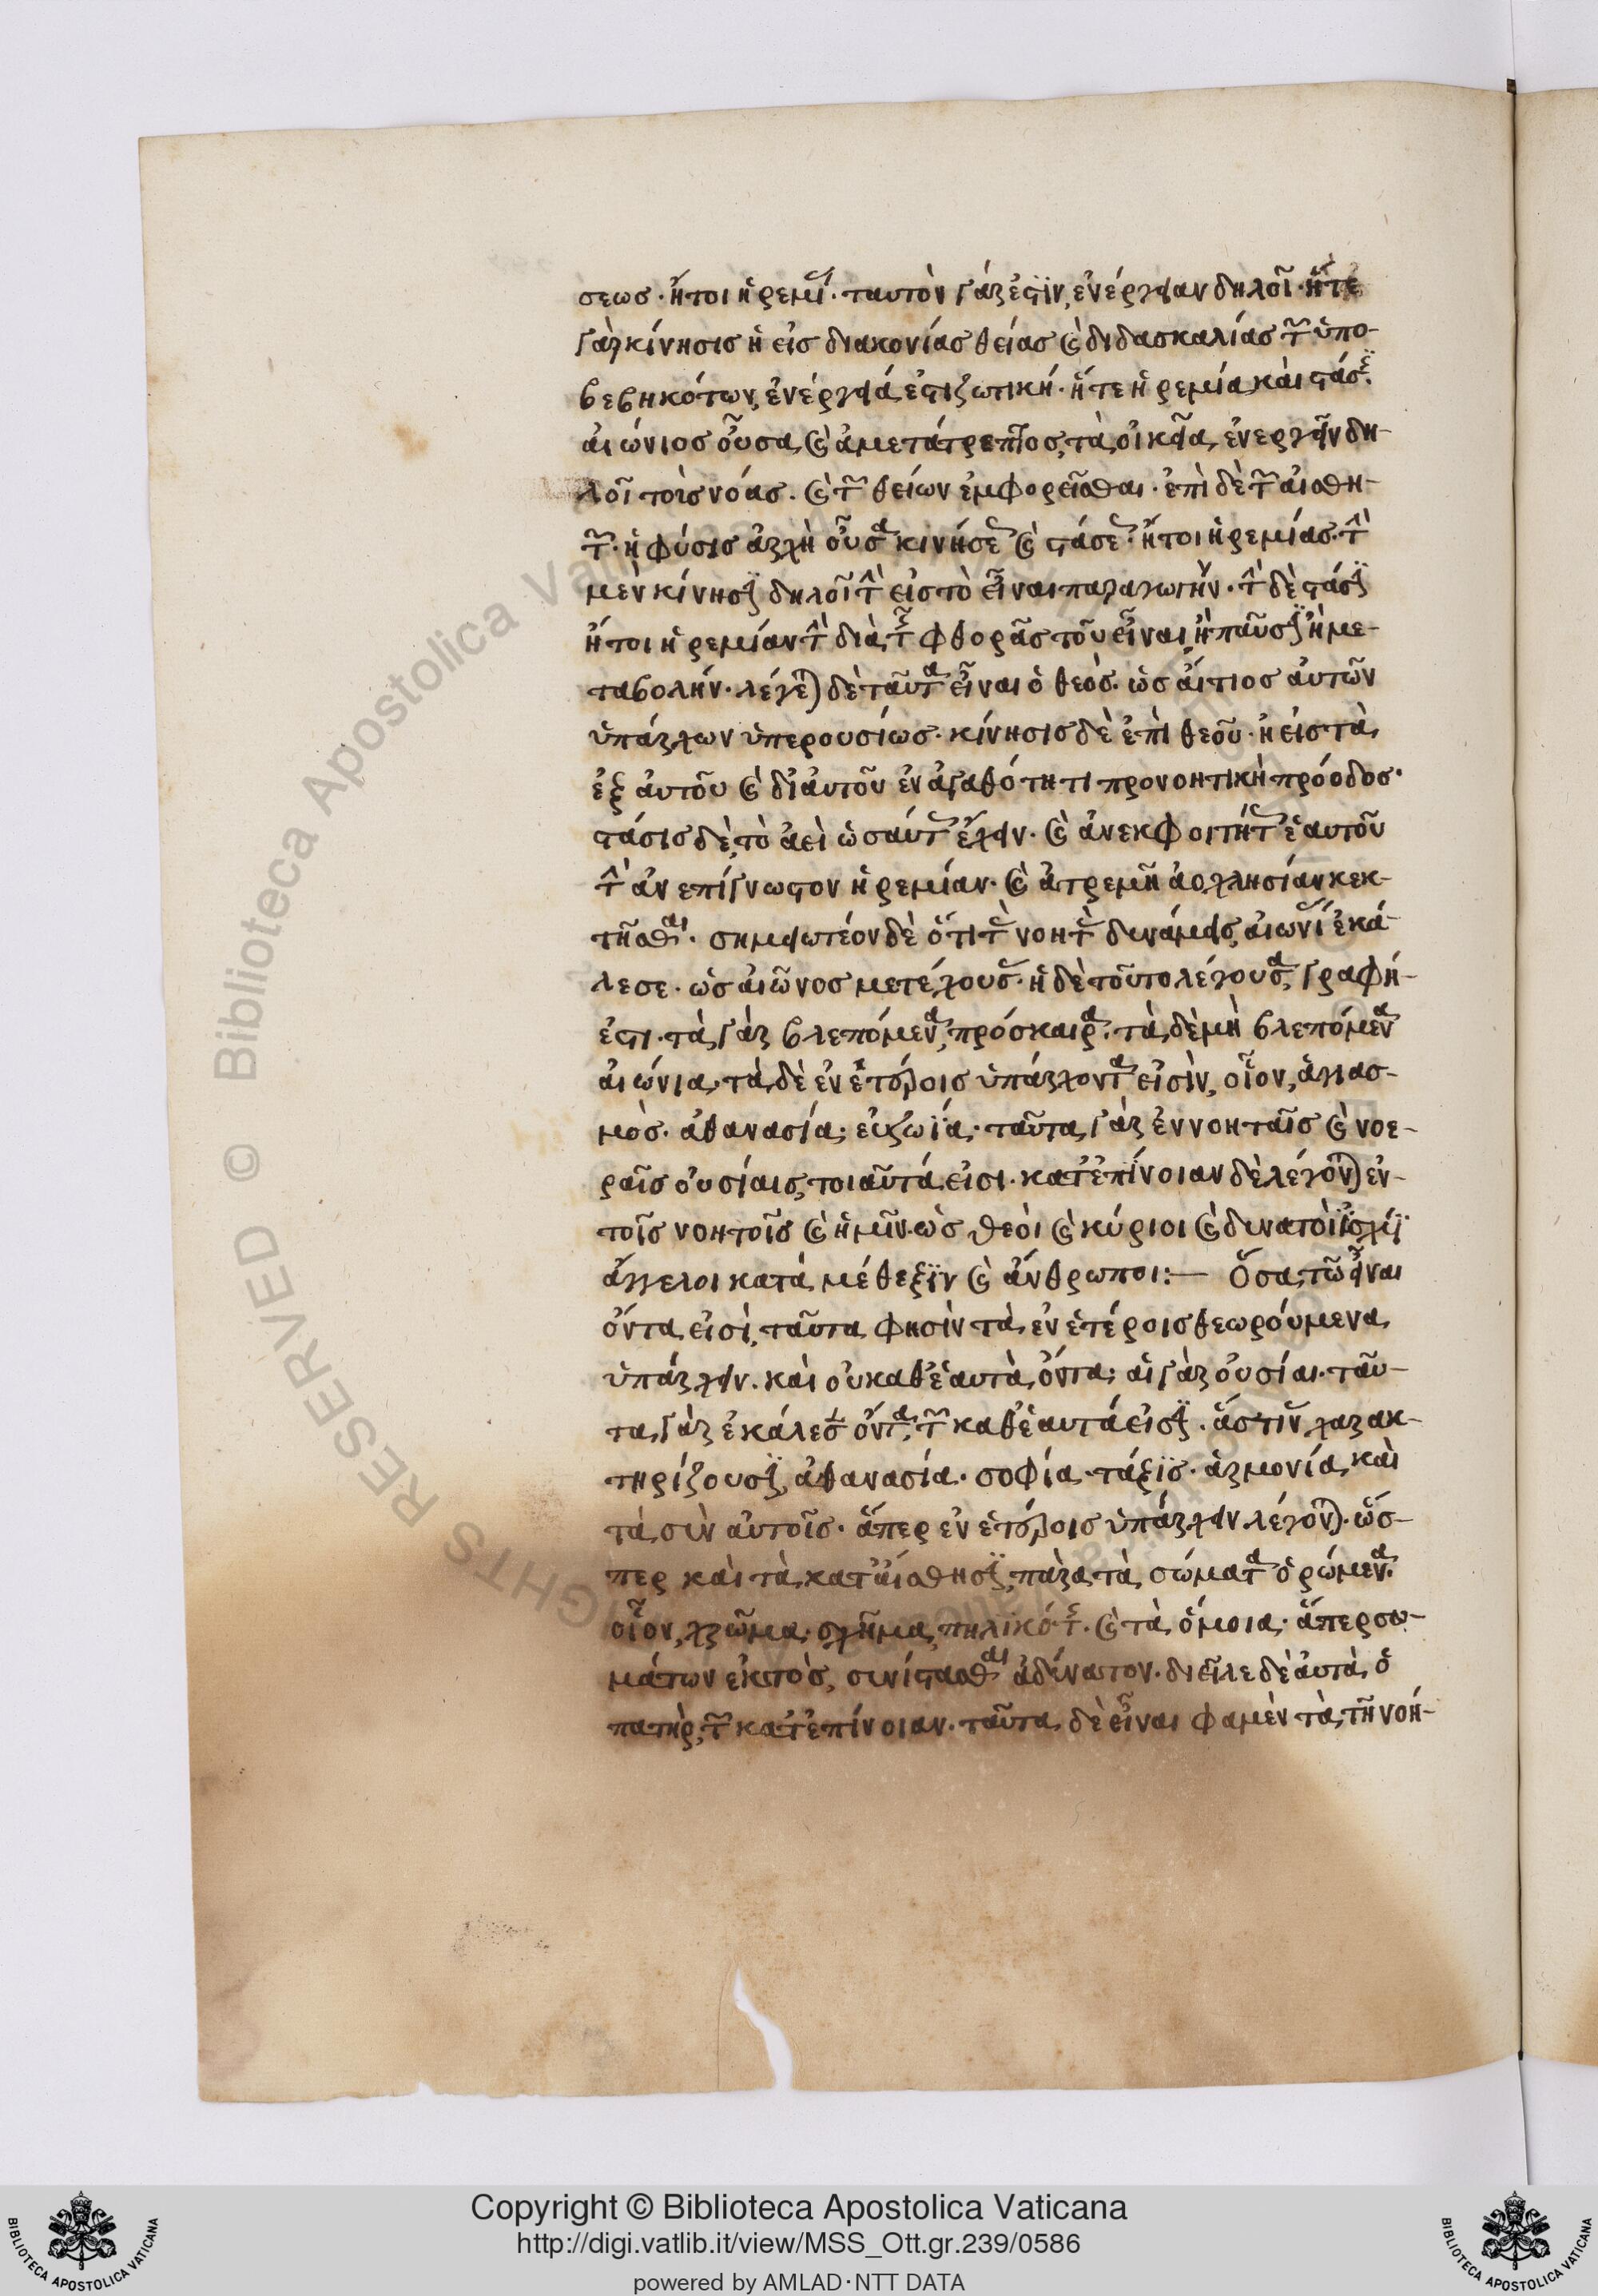 σεως· ἤτοι ἠρεμί· ταυτὸν γάρ ἐστιν, ἐνέργειαν δηλοῖ· ἥτε
γὰρ κίνησις ἡ εἰς διακονίας θείας καὶ διδασκαλίας τῶν ὑπο-
βεβηκότων, ἐνέργειά ἐστι ζωτική· ἥτε ἠρεμία καὶ στάσις
αἰώνιος οὖσα, καὶ ἀμετάτρεπτος, τὰ οἰκεῖα ἐνεργεῖν δη-
λοῖ τοὺς νόας· καὶ τῶν θείων ἐμφορεῖσθαι· ἐπὶ δὲ τῶν αἰσθη-
τῶν· ἡ φύσις ἀρχὴ οὖσα κινήσεως καὶ στάσεως· ἤτοι ἠρεμίας· τὴν
μὲν κίνησιν δηλοῖ τὴν εἰς τὸ εἶναι παραγωγήν· τὴν δὲ στάσιν
ἤτοι ἠρεμίαν τὴν διὰ τῆς φθορᾶς τοῦ εἶναι, ἢ παῦσιν ἢ με-
ταβολήν· λέγεται δὲ ταῦτα εἶναι ὁ θεὸς· ὡς αἴτιος αὐτῶν
ὑπάρχων ὑπερουσίως· κίνησις δὲ ἐπὶ θεοῦ· ἡ εἰς τὰ
ἐξ αὐτοῦ καὶ δι αὐτοῦ ἐν ἀγαθότητι προνοητικὴ πρόοδος·
στάσις δὲ, τὸ ἀεὶ ὡσαύτως ἔχειν· καὶ ἀνεκφοιτήτως ἑαυτοῦ
τὴν ἀνεπίγνωστον ἠρεμίαν· καὶ ἀτρεμῆ ἀοχλησίαν κεκ-
τῆσθαι· σημειωτέον δὲ ὅτι τὰς νοητὰς δυνάμεις, αἰωνίας ἐκά-
λεσε· ὡς αἰῶνος μετεχούσας· ἡ δὲ τοῦτο λέγουσα, γραφή
ἐστι· τὰ γὰρ βλεπόμενα, πρόσκαιρα· τὰ δὲ μὴ βλεπόμενα
αἰώνια, τὰ δὲ ἐν ἑτέροις ὑπάρχοντα εἰσὶν, οἷον, ἁγιασ-
μὸς· ἀθανασία· εὐζωΐα· ταῦτα γὰρ ἐν νοηταῖς καὶ νοε-
ραῖς οὐσίαις, τοιαῦτά εἰσι· κατ ἐπίνοιαν δὲ λέγονται ἐν
τοῖς νοητοῖς καὶ ἡμῖν· ὡς θεοὶ καὶ κύριοι καὶ δυνατοὶ ἰσχύϊ
ἄγγελοι κατὰ μέθεξιν καὶ ἄνθρωποι:— Ὅσα τῶ εἶναι
ὄντα εἰσὶ, ταῦτα φησὶν τὰ ἐν ἑτέροις θεωρούμενα
ὑπάρχειν· καὶ οὐ καθ ἑαυτὰ ὄντα; αἱ γὰρ οὐσίαι· ταῦ-
τα γὰρ ἐκάλεσεν ὄντα, τῶν καθ ἑαυτά εἰσιν· ἅς τινες χαρακ-
τηρίζουσιν, ἀθανασία· σοφία· τάξις· ἁρμονία, καὶ
τὰ σὺν αὐτοῖς· ἅπερ ἐν ἑτέροις ὑπάρχειν λέγονται· ὥσ-
περ καὶ τὰ κατ αἴσθησιν, παρὰ τὰ σώματα ὁρώμενα·
οἷον, χρῶμα· σχῆμα, πηλικότης· καὶ τὰ ὅμοια· ἅπερ σω-
μάτων ἐκτὸς, συνίστασθαι ἀδύνατον· διεῖλε δὲ αὐτὰ ὁ
πατὴρ, τῶν κατ ἐπίνοιαν· ταῦτα δὲ εἶναι φαμὲν τὰ τῇ νοή-
Copyright © Biblioteca Apostolica Vaticana
http://digi.vatlib.it/view/MSS_Ott.gr.239/0586
powered by AMLAD·NTT DATA